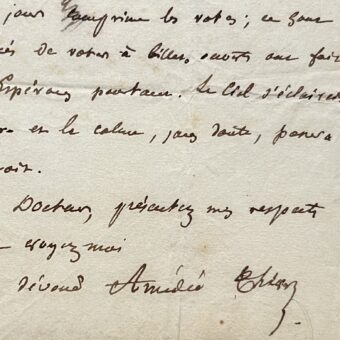 jours comprime les votes; ce sont
de votes à billes, ouverts ont fait
Espérons pourtant. Le Ciel s'éclaircit
et le calme, sans doute, parera
Docteur, présentez mes respects
croyez moi
dévoué Amédée Thierry